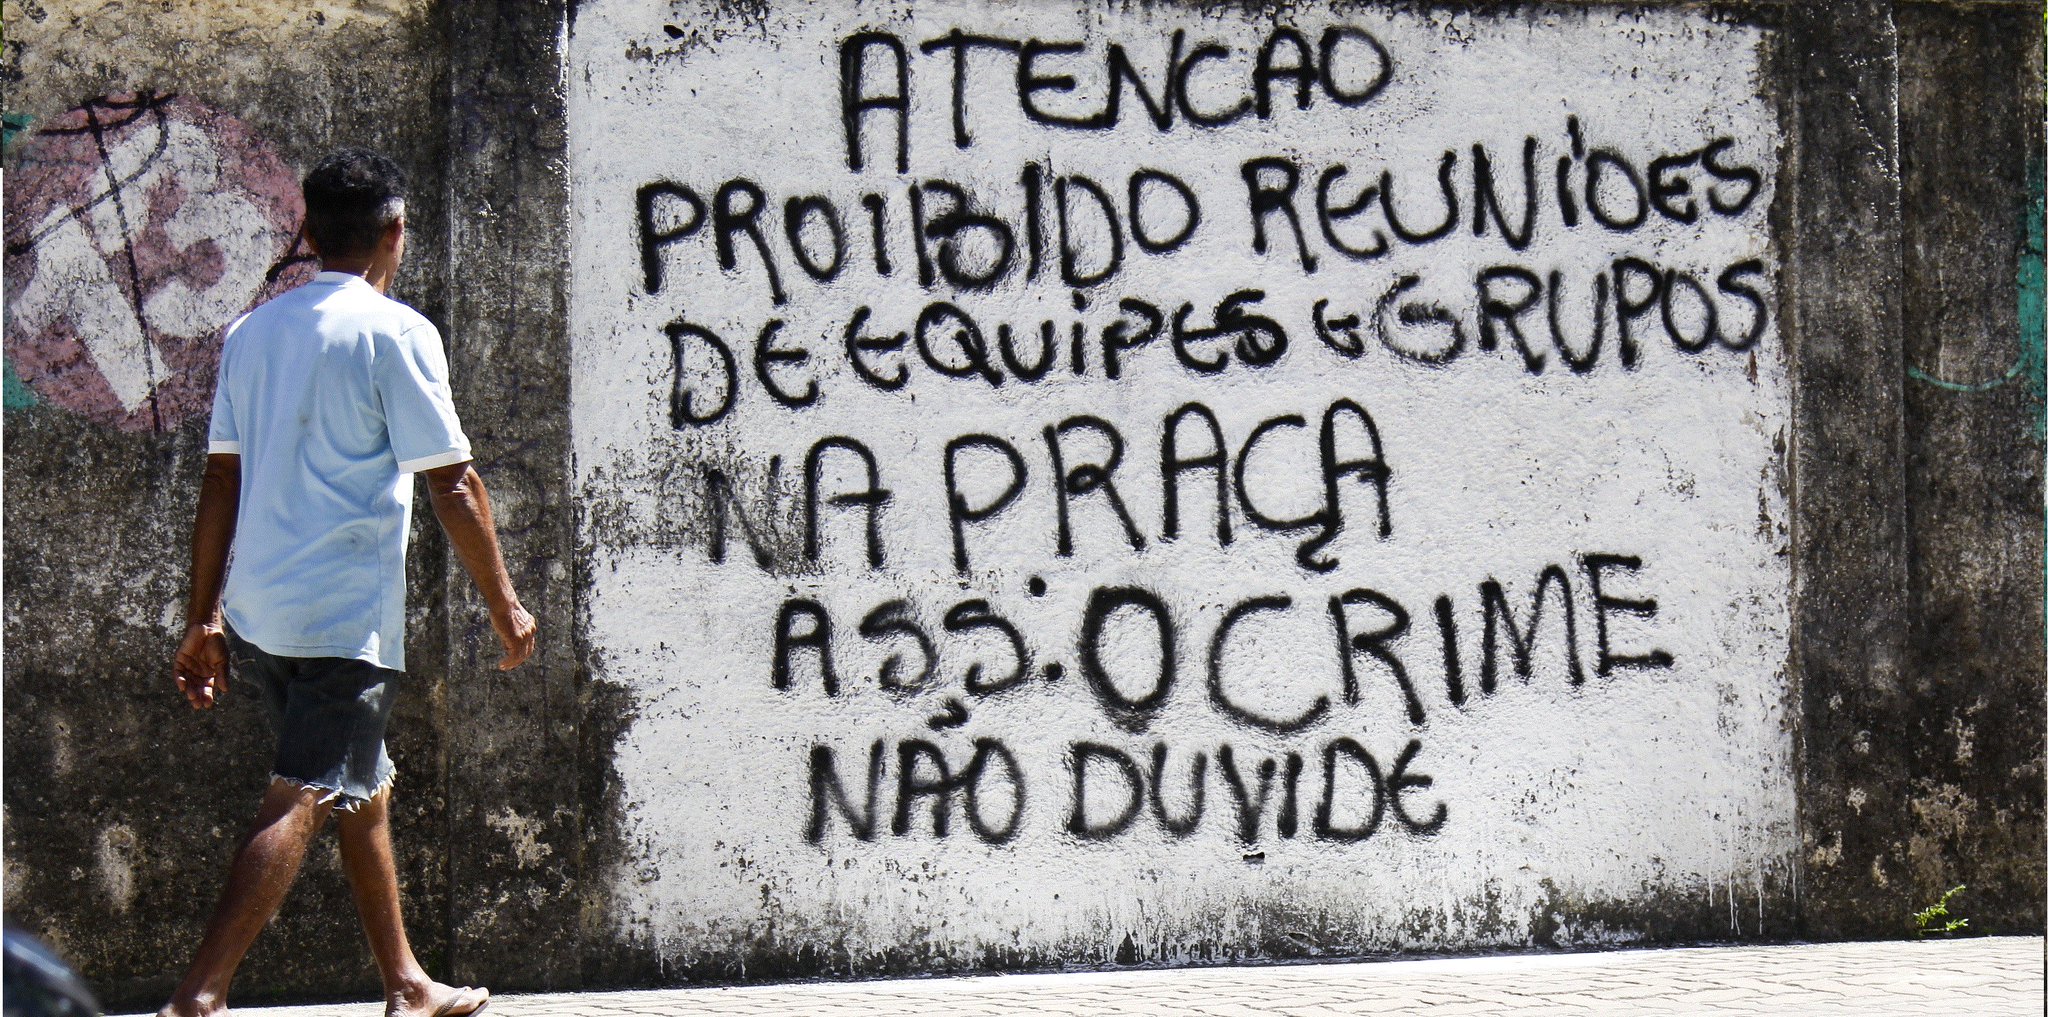 13
ATENCAO
PROIBIDO REUNIÓES
DE EQUIPES E GRUPOS
NA PRAÇA
ASS: O CRIME
NÃO DUVIDE